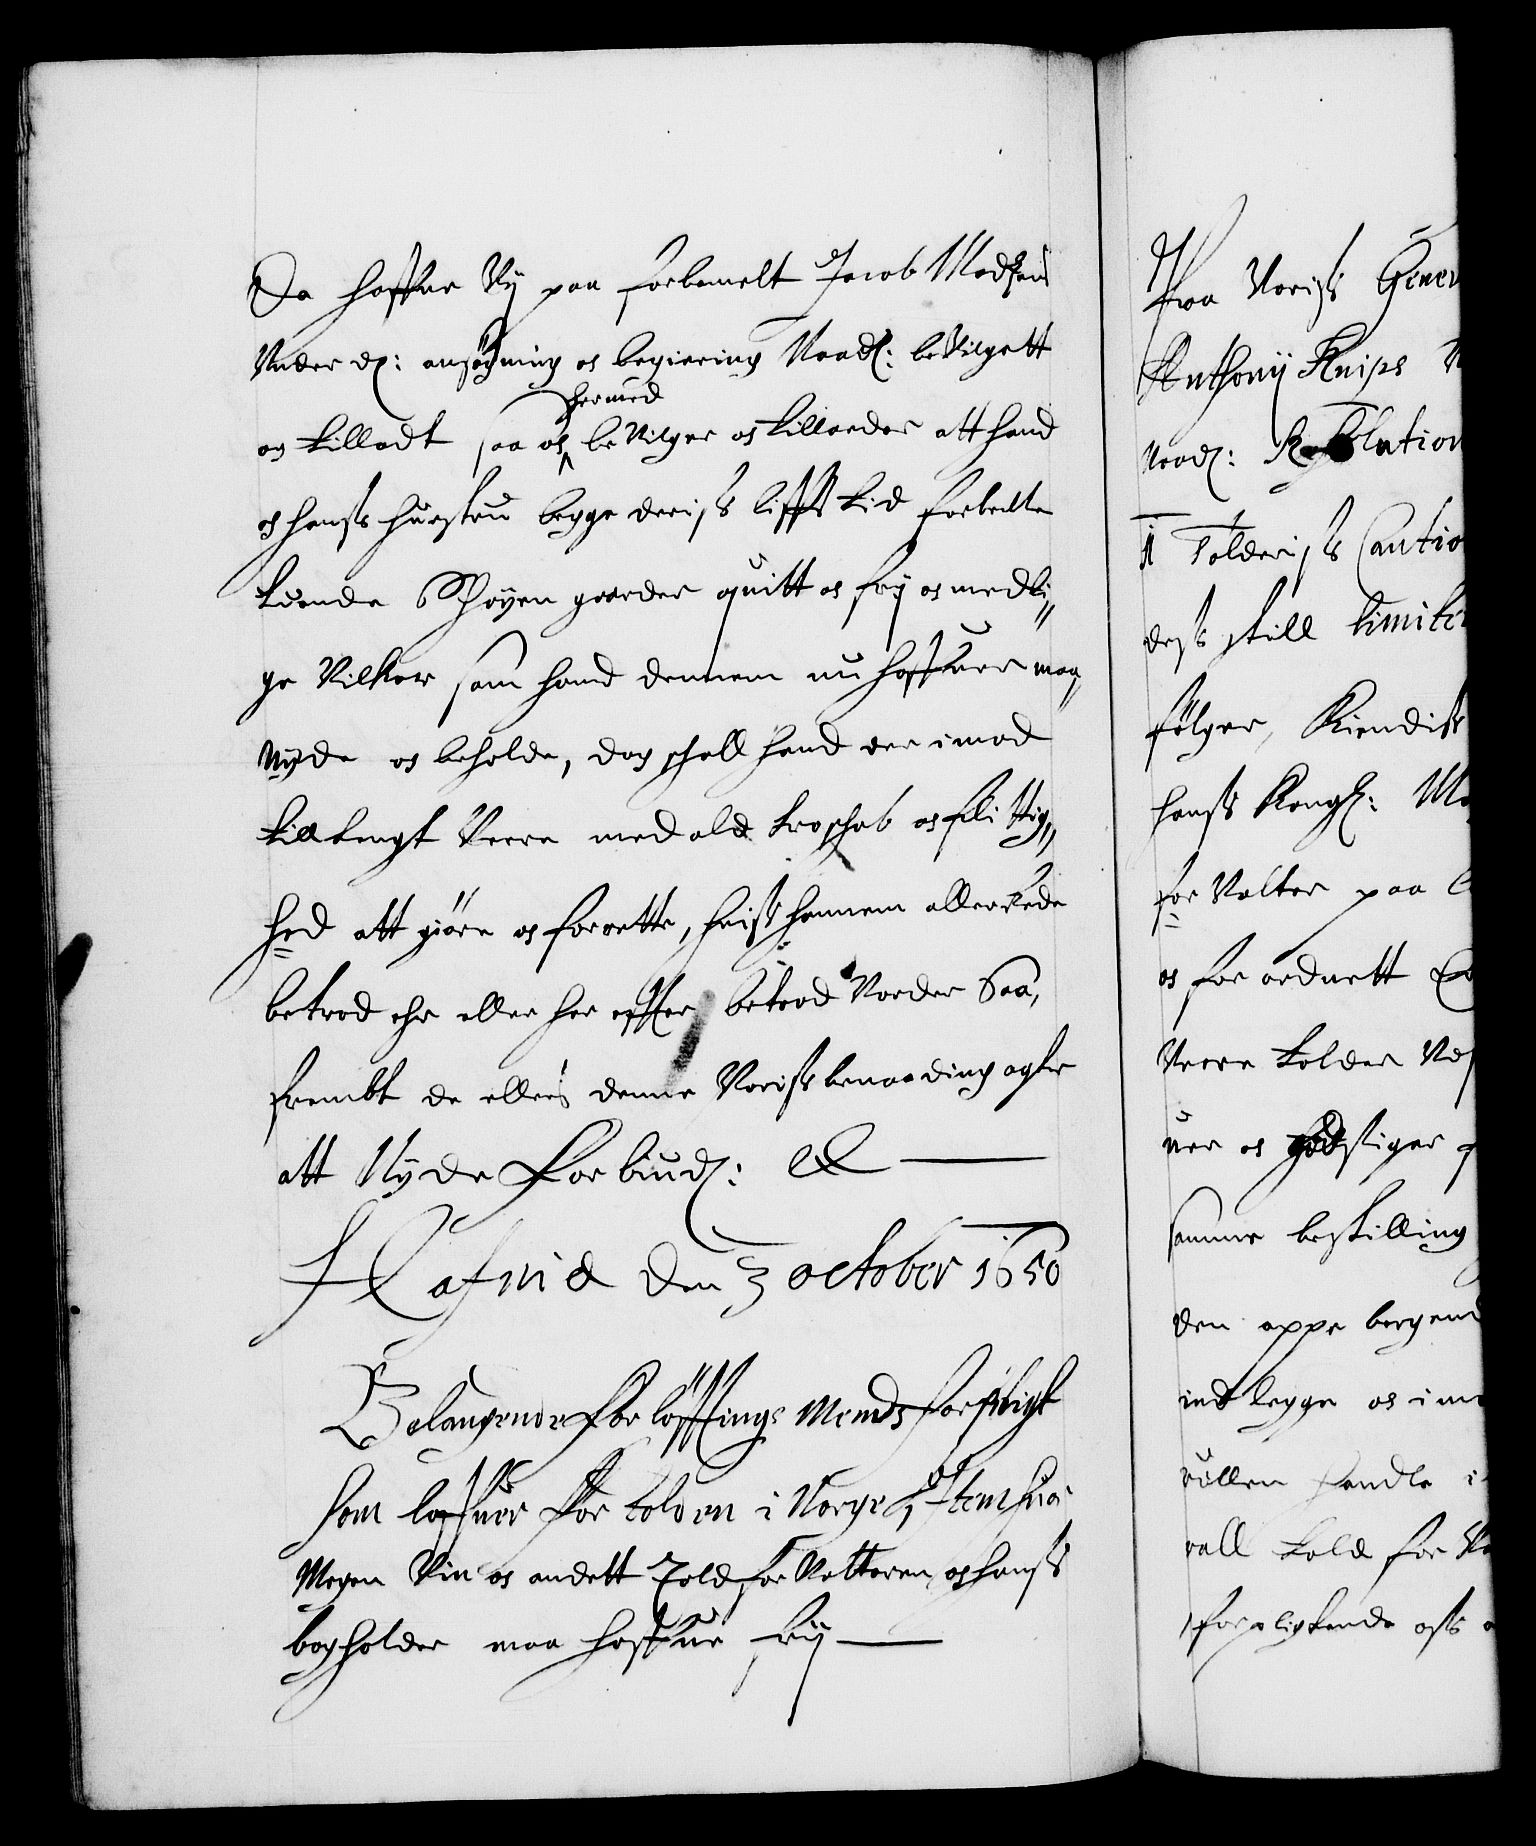 Da hafuer Vj paa forbemelt Jacob Madtzens
Under dn: ansögning og begiering Naadl: beVilgett
og tilladt saa og hermed beVilger og tillader att hand
og hanss hustru begge deriss liffs tid forbedte
tuende Thøyen gaarder quitt og frj og med li„
ge Vilkor som hand dennem nu haffuer maa„
Nyde og beholde, dog schall hand der imod
tilltengt Verre med ald troschab og flittig„
hed att giöre og forrette, huis hannem allerede
betrod ehr eller her effter betrod Vorder Saa,
frembt de ellers denne Voriss benaading agter
att Nyde Forbiud: &
Hafniæ den 3 october 1650
Belangende Forlöfftings Mends forsickt
som lofuer For tolden i Norge, Item huor
Megen Vin og andett Toldforvalteren og hanss
bogholder maa haffue frj
Fra Voriss Gener
Anthonj Knips
Naadl: Resolution
i Tolderiss Cautio
dess till timite
fölger, Kiendiss
hanss Kongl: Ma
for Valter paa
og for ordnett
Verre tolder Ved
uer og
samme bestilling
den oppe bergend
indlegge og imo
uillen handle i
uall told for
forpligtende oss